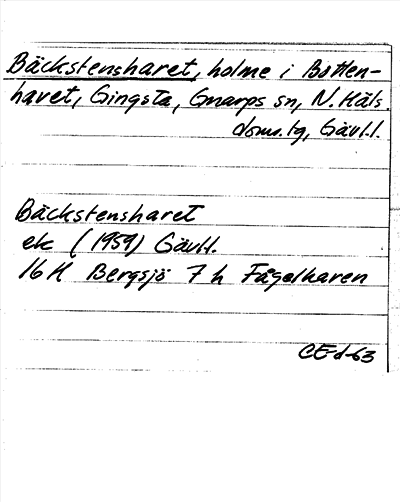 Bäckstensharet, holme i Botten-
havet, Gingsta, Gnarps sn, N. Häls.
doms.lg, Gävl.l.
Bäckstensharet
ek (1959) Gävl.l.
16 H Bergsjö 7 h Fågelharen
CE-d-63